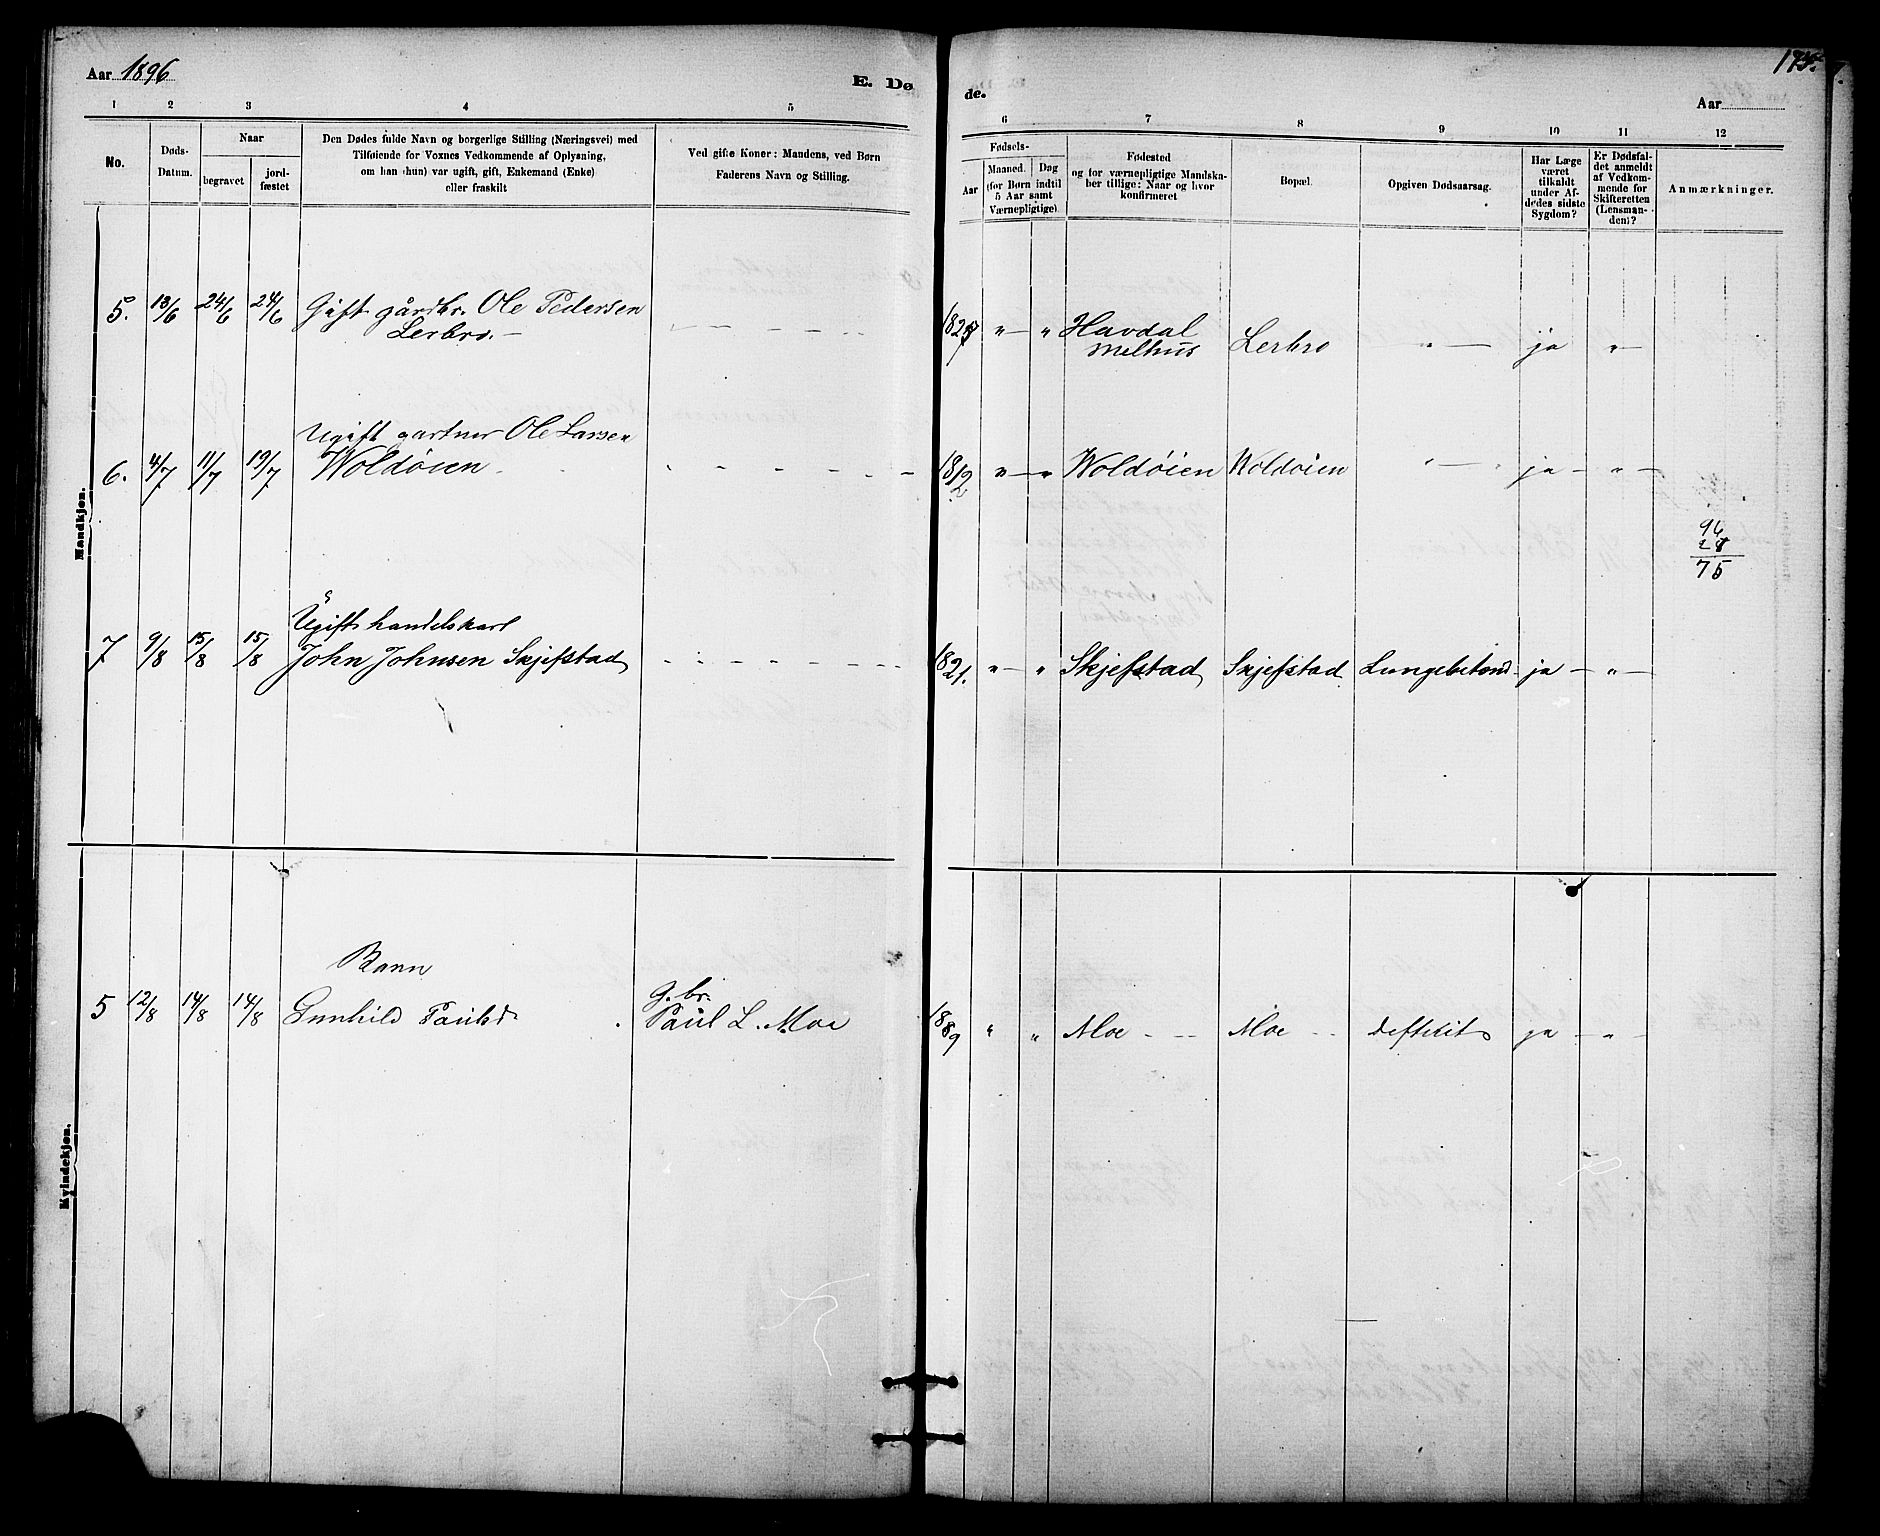 Aar 1896
E. Dø
de.
175.
Aar
1 2 3 4 5
6 7 8 9 10 11 12
No.
Døds-
Datum.
Naar
begravet
jord-
fæstet
Den Dødes fulde Navn og borgerlige Stilling (Næringsvei) med
Tilføiende for Voxnes Vedkommende af Oplysning,
om han (hun) var ugift, gift, Enkemand (Enke)
eller fraskilt
Ved gifte Koner: Mandens, ved Børn
Faderens Navn og Stilling.
Fødsels-
Aar
Maaned. Dag
(for Børn indtil
5 Aar samt
Værnepligtige)
Fødested
og for værnepligtige Mandska-
ber tillige: Naar og hvor
konfirmeret
Bopæl.
Opgiven Dødsaarsag.
Har Læge
været
tilkaldt
under Af-
dødes sidste
Sygdom?
Er Dødsfal-
det anmeldt
af Vedkom-
mende for
Skifteretten
(Lensman-
den)?
Anmærkninger.
Mandkjøn.
5. 13/6 24/6 24/6 Gift gårdbr. Ole Pedersen
Lerbro. —
Havdal
Melhus
Lerbro " — ja " —
Ugift gartner Ole Larsen
6. 4/7 11/7 19/7 Woldøien
1812 " — " Woldøien Woldøien " — ja — " —
96
75
Ugift handelskarl
7 9/8 15/8 15/8 John Johnsen Skjefstad
1821. " — " Skjefstad Skjefstad Lungebetænd. ja — " —
Kvindekjøn.
Barn
5 12/8 14/8 14/8 Gunhild Paulsd.
G. br.
Paul L. Moe
1889 " " Moe Moe deftitit ja — " —